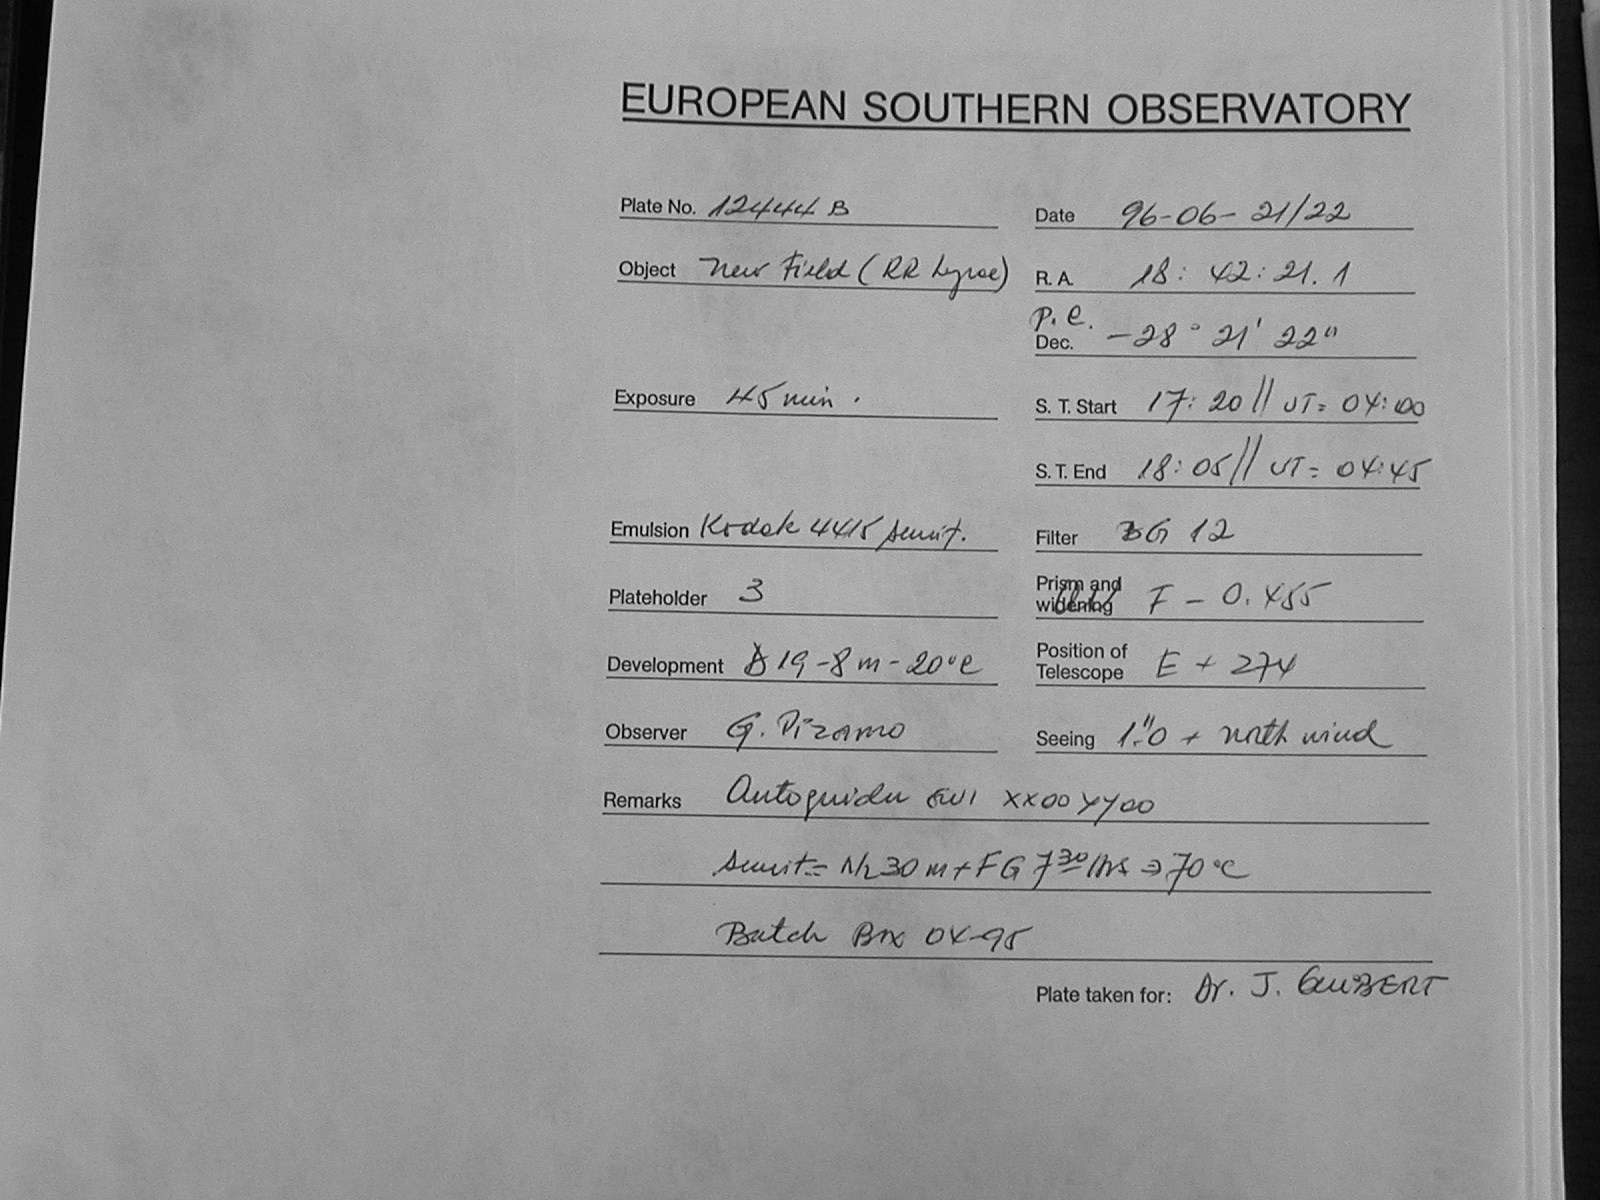 EUROPEAN SOUTHERN OBSERVATORY
Plate No. 12444 B
Date 96-06-21/22
Object New Field (RR Lyrae)
R. A. 18: 42: 21. 1
p. e.
Dec. -28° 21' 22"
Exposure 45 min.
S. T. Start 17: 20 // UT= 04:00
S. T. End 18: 05 // UT= 04:45
Emulsion Kodak 4415 sensit.
Filter BG 12
Plateholder 3
Prism and widening F - 0.455
Development D 19 -8 m - 20°C
Position of Telescope E + 274
Observer G. Pizarro
Seeing 1."0 + north wind
Remarks Autoguider XX00 YY00
Sensit= N2 30 m + FG 7 30 hrs → 70°C
Batch Box 04-95
Plate taken for: Dr. J. GUIBERT